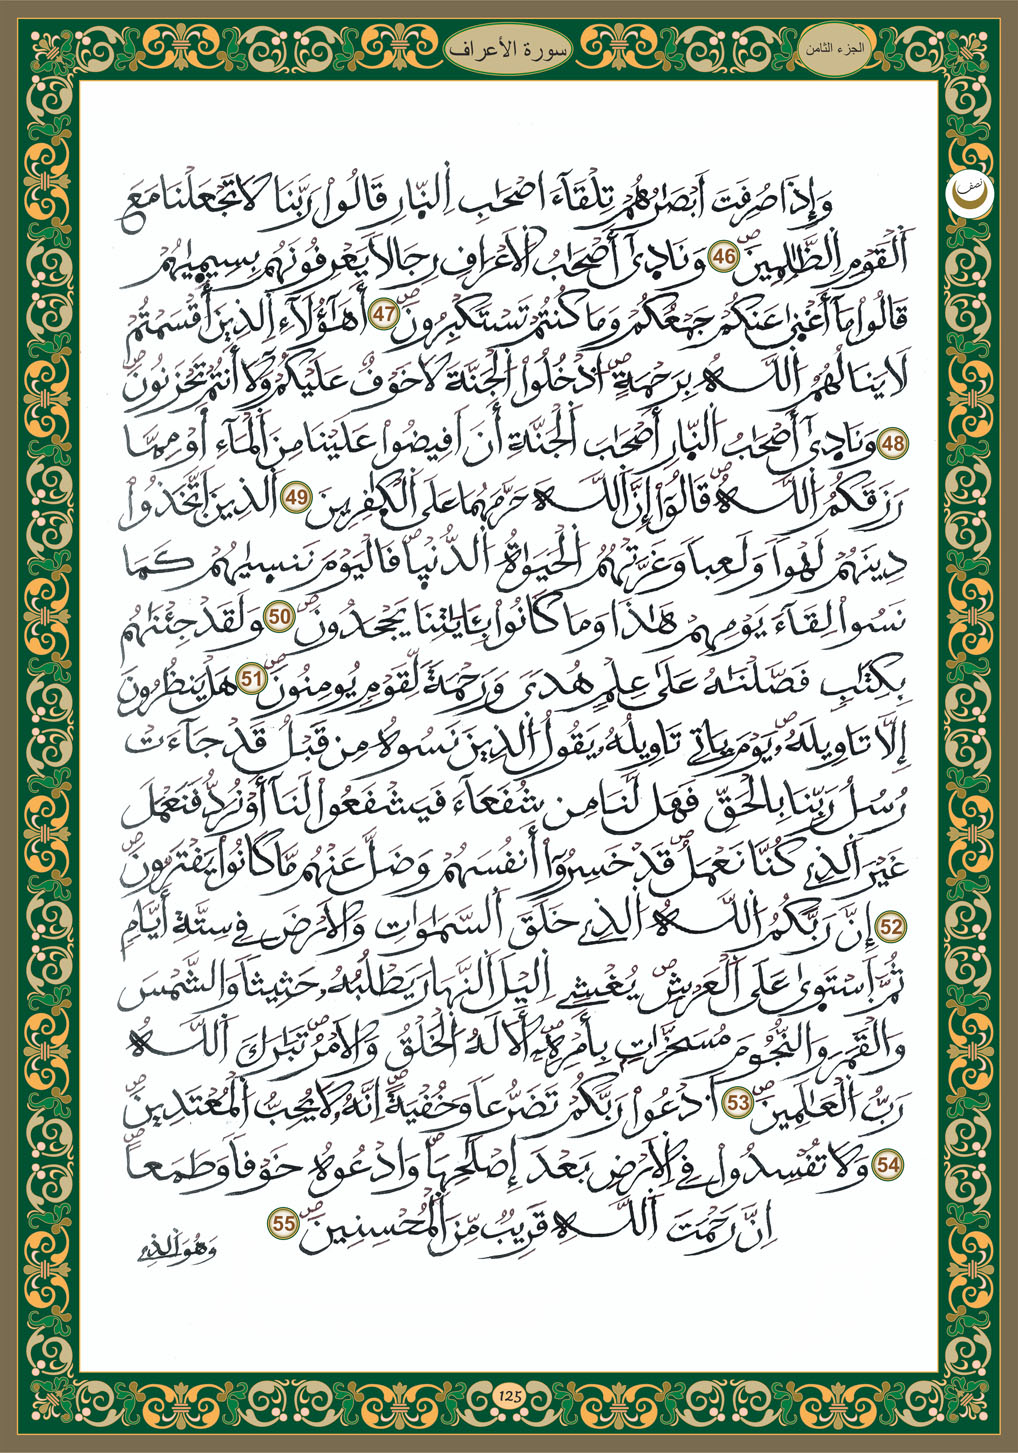 الجزء الثامن
سورة الأعراف
نصف
وَإِذَا صُرِفَتَ اَبْصَٰرُهُمْ تِلْقَآءَ اصْحَٰبِ اِ۬لنّ۪ارِ قَالُواْ رَبَّنَا لَا تَجْعَلْنَا مَعَ
اَ۬لْقَوْمِ اِ۬لظَّٰلِمِينَۖ 46 وَنَاد۪ىٰٓ أَصْحَٰبُ اُ۬لَاعْرَافِ رِجَالاٗ يَعْرِفُونَهُم بِسِيم۪يٰهُمْ
قَالُواْ مَآ أَغْن۪ىٰ عَنكُمْ جَمْعُكُمْ وَمَا كُنتُمْ تَسْتَكْبِرُونَۖ 47 أَهَٰٓؤُلَآءِ اِ۬لذِينَ أَقْسَمْتُمْ
لَا يَنَالُهُمُ اُ۬للَّهُ بِرَحْمَةٍۖ اُ۟دْخُلُواْ اُ۬لْجَنَّةَ لَا خَوْفٌ عَلَيْكُمْ وَلَآ أَنتُمْ تَحْزَنُونَۖ
48 وَنَاد۪ىٰٓ أَصْحَٰبُ اُ۬لنّ۪ارِ أَصْحَٰبَ اَ۬لْجَنَّةِ أَنَ اَفِيضُواْ عَلَيْنَا مِنَ اَ۬لْمَآءِ أَوْ مِمَّا
رَزَقَكُمُ اُ۬للَّهُۖ قَالُوٓاْ إِنَّ اَ۬للَّهَ حَرَّمَهُمَا عَلَى اَ۬لْكٰ۪فِرِينَ 49 اَ۬لذِينَ اَ۪تَّخَذُواْ
دِينَهُمْ لَهْواٗ وَلَعِباٗ وَغَرَّتْهُمُ اُ۬لْحَيَوٰةُ اُ۬لدُّنْي۪اۖ فَالْيَوْمَ نَنس۪يٰهُمْ كَمَا
نَسُواْ لِقَآءَ يَوْمِهِمْ هَٰذَا وَمَا كَانُواْ بِـَٔايَٰتِنَا يَجْحَدُونَۖ 50 وَلَقَدْ جِئْنَٰهُم
بِكِتَٰبٖ فَصَّلْنَٰهُ عَلَىٰ عِلْمٍ هُدىٗ وَرَحْمَةٗ لِّقَوْمٖ يُومِنُونَۖ 51 هَلْ يَنظُرُونَ
إِلَّا تَاوِيلَهُۥۖ يَوْمَ يَاتِے تَاوِيلُهُۥ يَقُولُ اُ۬لذِينَ نَسُوهُ مِن قَبْلُ قَدْ جَآءَتْ
رُسُلُ رَبِّنَا بِالْحَقِّ فَهَل لَّنَا مِن شُفَعَآءَ فَيَشْفَعُواْ لَنَآ أَوْ نُرَدُّ فَنَعْمَلَ
غَيْرَ اَ۬لذِے كُنَّا نَعْمَلُۖ قَدْ خَسِرُوٓاْ أَنفُسَهُمْ وَضَلَّ عَنْهُم مَّا كَانُواْ يَفْتَرُونَۖ
52 إِنَّ رَبَّكُمُ اُ۬للَّهُ اُ۬لذِے خَلَقَ اَ۬لسَّمَٰوَٰتِ وَالَارْضَ فِے سِتَّةِ أَيَّامٖ
ثُمَّ اَ۪سْتَو۪ىٰ عَلَى اَ۬لْعَرْشِۖ يُغْشِے اِ۬ليْلَ اَ۬لنَّهَارَ يَطْلُبُهُۥ حَثِيثاٗ وَالشَّمْسَ
وَالْقَمَرَ وَالنُّجُومَ مُسَخَّرَٰتِۢ بِأَمْرِهِۦٓۖ أَلَا لَهُ اُ۬لْخَلْقُ وَالَامْرُۖ تَبَٰرَكَ اَ۬للَّهُ
رَبُّ اُ۬لْعَٰلَمِينَۖ 53 اَ۟دْعُواْ رَبَّكُمْ تَضَرُّعاٗ وَخُفْيَةًۖ اِنَّهُۥ لَا يُحِبُّ اُ۬لْمُعْتَدِينَۖ
54 وَلَا تُفْسِدُواْ فِے اِ۬لَارْضِ بَعْدَ إِصْلَٰحِهَاۖ وَادْعُوهُ خَوْفاٗ وَطَمَعاًۖ
اِنَّ رَحْمَتَ اَ۬للَّهِ قَرِيبٞ مِّنَ اَ۬لْمُحْسِنِينَۖ 55
وَهُوَ اَ۬لذِے
125